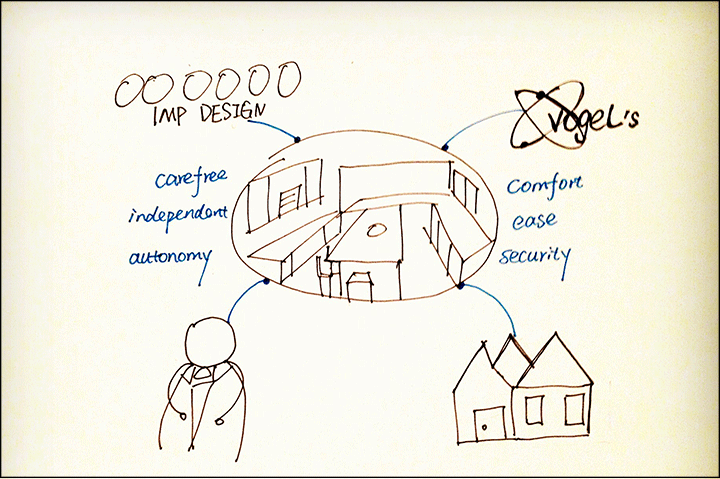 IMP DESIGN
VOgeL's
carefree
independent
autonomy
comfort
ease
security